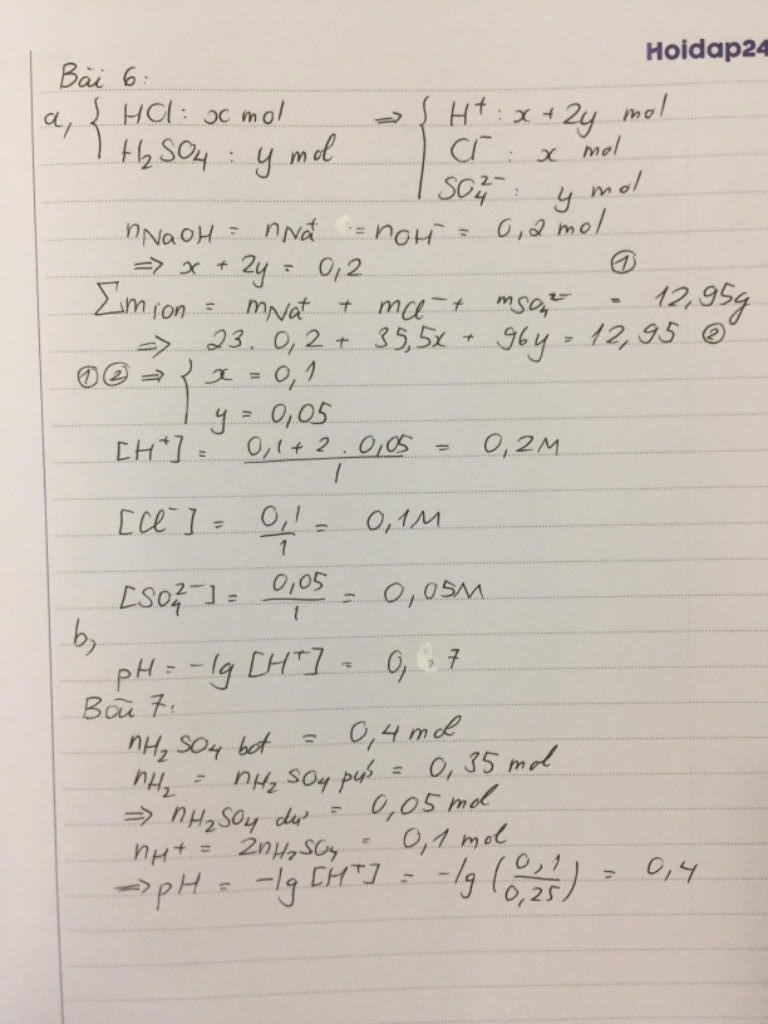 Hoidap24
Bài 6:
a, { HCl : x mol ⇒ { H⁺ : x + 2y mol
H₂SO₄ : y mol Cl⁻ : x mol
SO₄²⁻ : y mol
nNaOH = nNa⁺ = nOH⁻ = 0,2 mol
⇒ x + 2y = 0,2 ①
∑m ion = mNa⁺ + mCl⁻ + mSO₄²⁻ = 12,95g
⇒ 23. 0,2 + 35,5x + 96y = 12,95 ②
①② ⇒ { x = 0,1
y = 0,05
[H⁺] = (0,1 + 2 . 0,05)/1 = 0,2M
[Cl⁻] = 0,1/1 = 0,1M
[SO₄²⁻] = 0,05/1 = 0,05M
b,
pH = -lg [H⁺] = 0, 7
Bài 7:
nH₂SO₄ bđ = 0,4 mol
nH₂ = nH₂SO₄ pứ = 0,35 mol
⇒ nH₂SO₄ dư = 0,05 mol
nH⁺ = 2nH₂SO₄ = 0,1 mol
⇒ pH = -lg [H⁺] = -lg (0,1/0,25) = 0,4